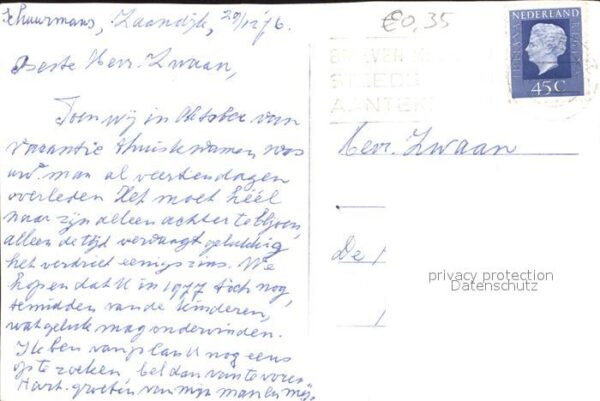 Schuurmans, Zaandijk, 20/12 '76.
Beste Mevr. Zwaan,
Toen wij in Oktober van
vacantie thuiskwamen, was
uw man al veertien dagen
overleden. Het moet héél
naar zijn alleen achter te blijven,
alleen de tijd vervaagt gelukkig
het verdriet enigszins. We
hopen dat U in 1977 toch nog,
temidden van de kinderen,
wat geluk mag ondervinden.
Ik ben van plan U nog eens
op te zoeken bel dan van te voren
Hart. groeten van mijn man en mij.
€0,35
NEDERLAND
45C
STEEDS
Mevr. Zwaan
De
privacy protection
Datenschutz